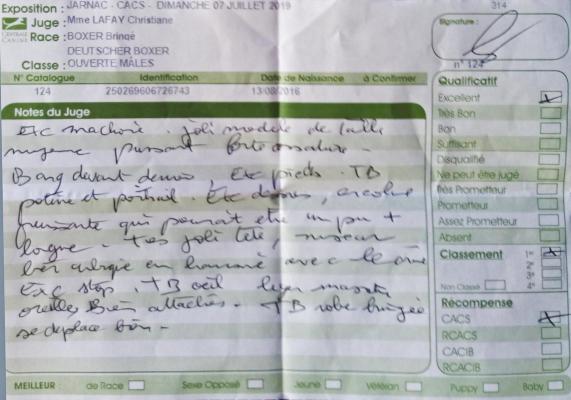 Exposition : JARNAC - CACS - DIMANCHE 07 JUILLET 2019
314
Juge : Mme LAFAY Christiane
Race : BOXER Bringé
DEUTSCHER BOXER
Classe : OUVERTE MÂLES
Signature :
n° 124
N° Catalogue Identification Date de Naissance à Confirmer
124 250269606726743 13/08/2016
Notes du Juge
Exc machoire. joli modele de taille
moyenne puissant forte ossature -
Bang devant demus, Exc pieds. TB
poitrine et poitrail. Exc dessus, encolure
puissante qui pourrait etre un peu +
longue. tres joli tête, museau
bien en harmonie avec le crâne
Exc stop. TB oeil leger masque
oreilles Bien attachées. TB robe bringée
se deplace bien -
Qualificatif
Excellent
Très Bon
Bon
Suffisant
Disqualifié
Ne peut être jugé
Très Prometteur
Prometteur
Assez Prometteur
Absent
Classement 1er
2e
3e
Non Classé 4e
Récompense
CACS
RCACS
CACIB
RCACIB
MEILLEUR : de Race Sexe Opposé Jeune Vétéran Puppy Baby